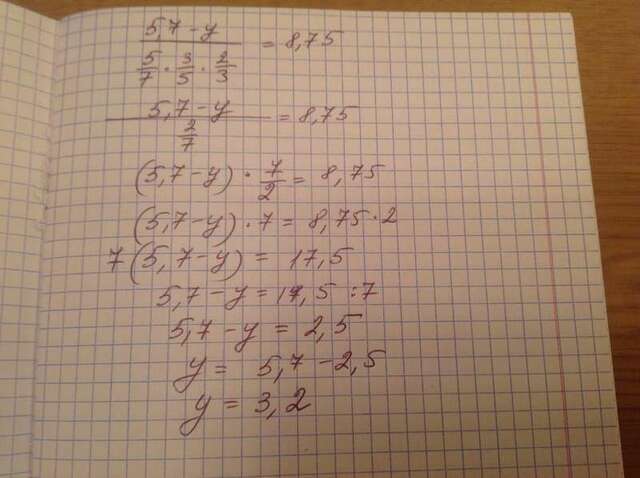 5,7 - y
5/7 · 3/5 · 2/3 = 8,75
5,7 - y
2/7 = 8,75
(5,7 - y) · 7/2 = 8,75
(5,7 - y) · 7 = 8,75 · 2
7(5,7 - y) = 17,5
5,7 - y = 17,5 : 7
5,7 - y = 2,5
y = 5,7 - 2,5
y = 3,2